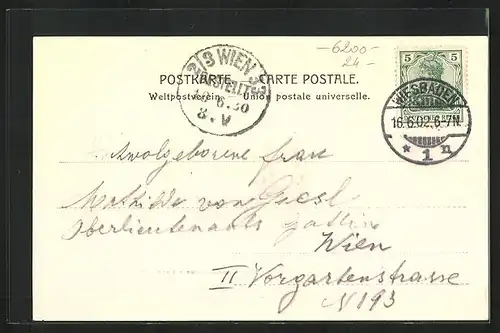 —6200—
24—
5 5
2/3 WIEN 2/3
BESTELLT
8.V
POSTKARTE. — CARTE POSTALE.
Weltpostverein. — Union postale universelle.
WIESBADEN
16.6.02.6-7N.
* 1 n
Hochwolgeborene Frau
Mathilde von Giesl
Oberlieutenants Gattin
Wien
II Vorgartenstrasse
N193